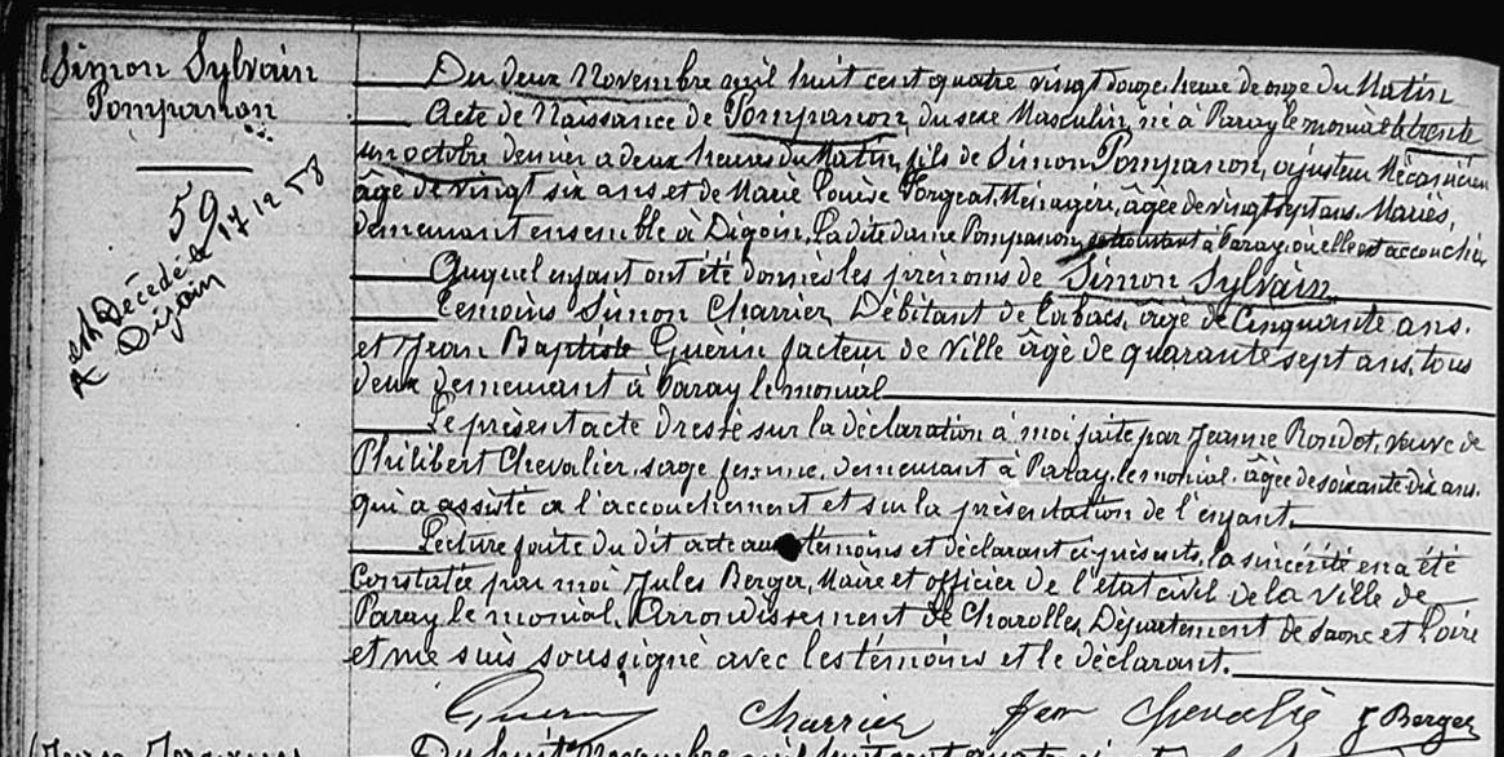 Simon Sylvain
Pompanon
59
est décédé le 17 12 58
à Digoin
Du deux Novembre mil huit cent quatre vingt douze, heure de onze du Matin
Acte de Naissance de Pompanon, du sexe Masculin, né à Paray le monial le trente
un octobre dernier a deux heures du Matin, fils de Simon Pompanon, ajusteur Mécanicien
âgé de vingt six ans et de Marie Louise Forgeat, Ménagère, âgée de vingt sept ans, Mariés,
demeurant ensemble à Digoin, la dite dame Pompanon, se trouvant à Paray où elle est accouchée
Auquel enfant ont été donnés les prénoms de Simon Sylvain
Témoins Simon Charrier, Débitant de tabacs, âgé de Cinquante ans.
et Jean Baptiste Guérin facteur de Ville âgé de quarante sept ans, tous
deux demeurant à Paray le monial
Le présent acte dressé sur la déclaration à moi faite par Jeanne Rondot, veuve de
Philibert Chevalier, sage femme, demeurant à Paray-le-monial, âgée de soixante dix ans.
qui a assisté a l'accouchement et sur la présentation de l'enfant.
Lecture faite du dit acte aux témoins et déclarant ci présents, la sincérité en a été
Constatée par moi Jules Berger, Maire et officier de l'état civil de la Ville de
Paray le monial, Arrondissement de Charolles, Département de Saone et Loire
et me suis soussigné avec les témoins et le déclarant.
Guerin Charrier Chevalié J Berger
Du huit Novembre mil huit cent quatre vingt